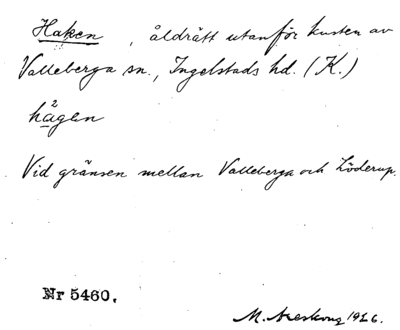 Haken, åldrätt utanför kusten av
Valleberga sn., Ingelstads hd. (K.)
hågen
Vid gränsen mellan Valleberga och Löderup.
Nr 5460.
M. Areskoug 1926.